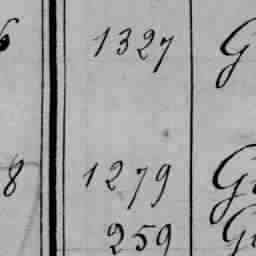 6 1327 G
8 1279 G
259 G